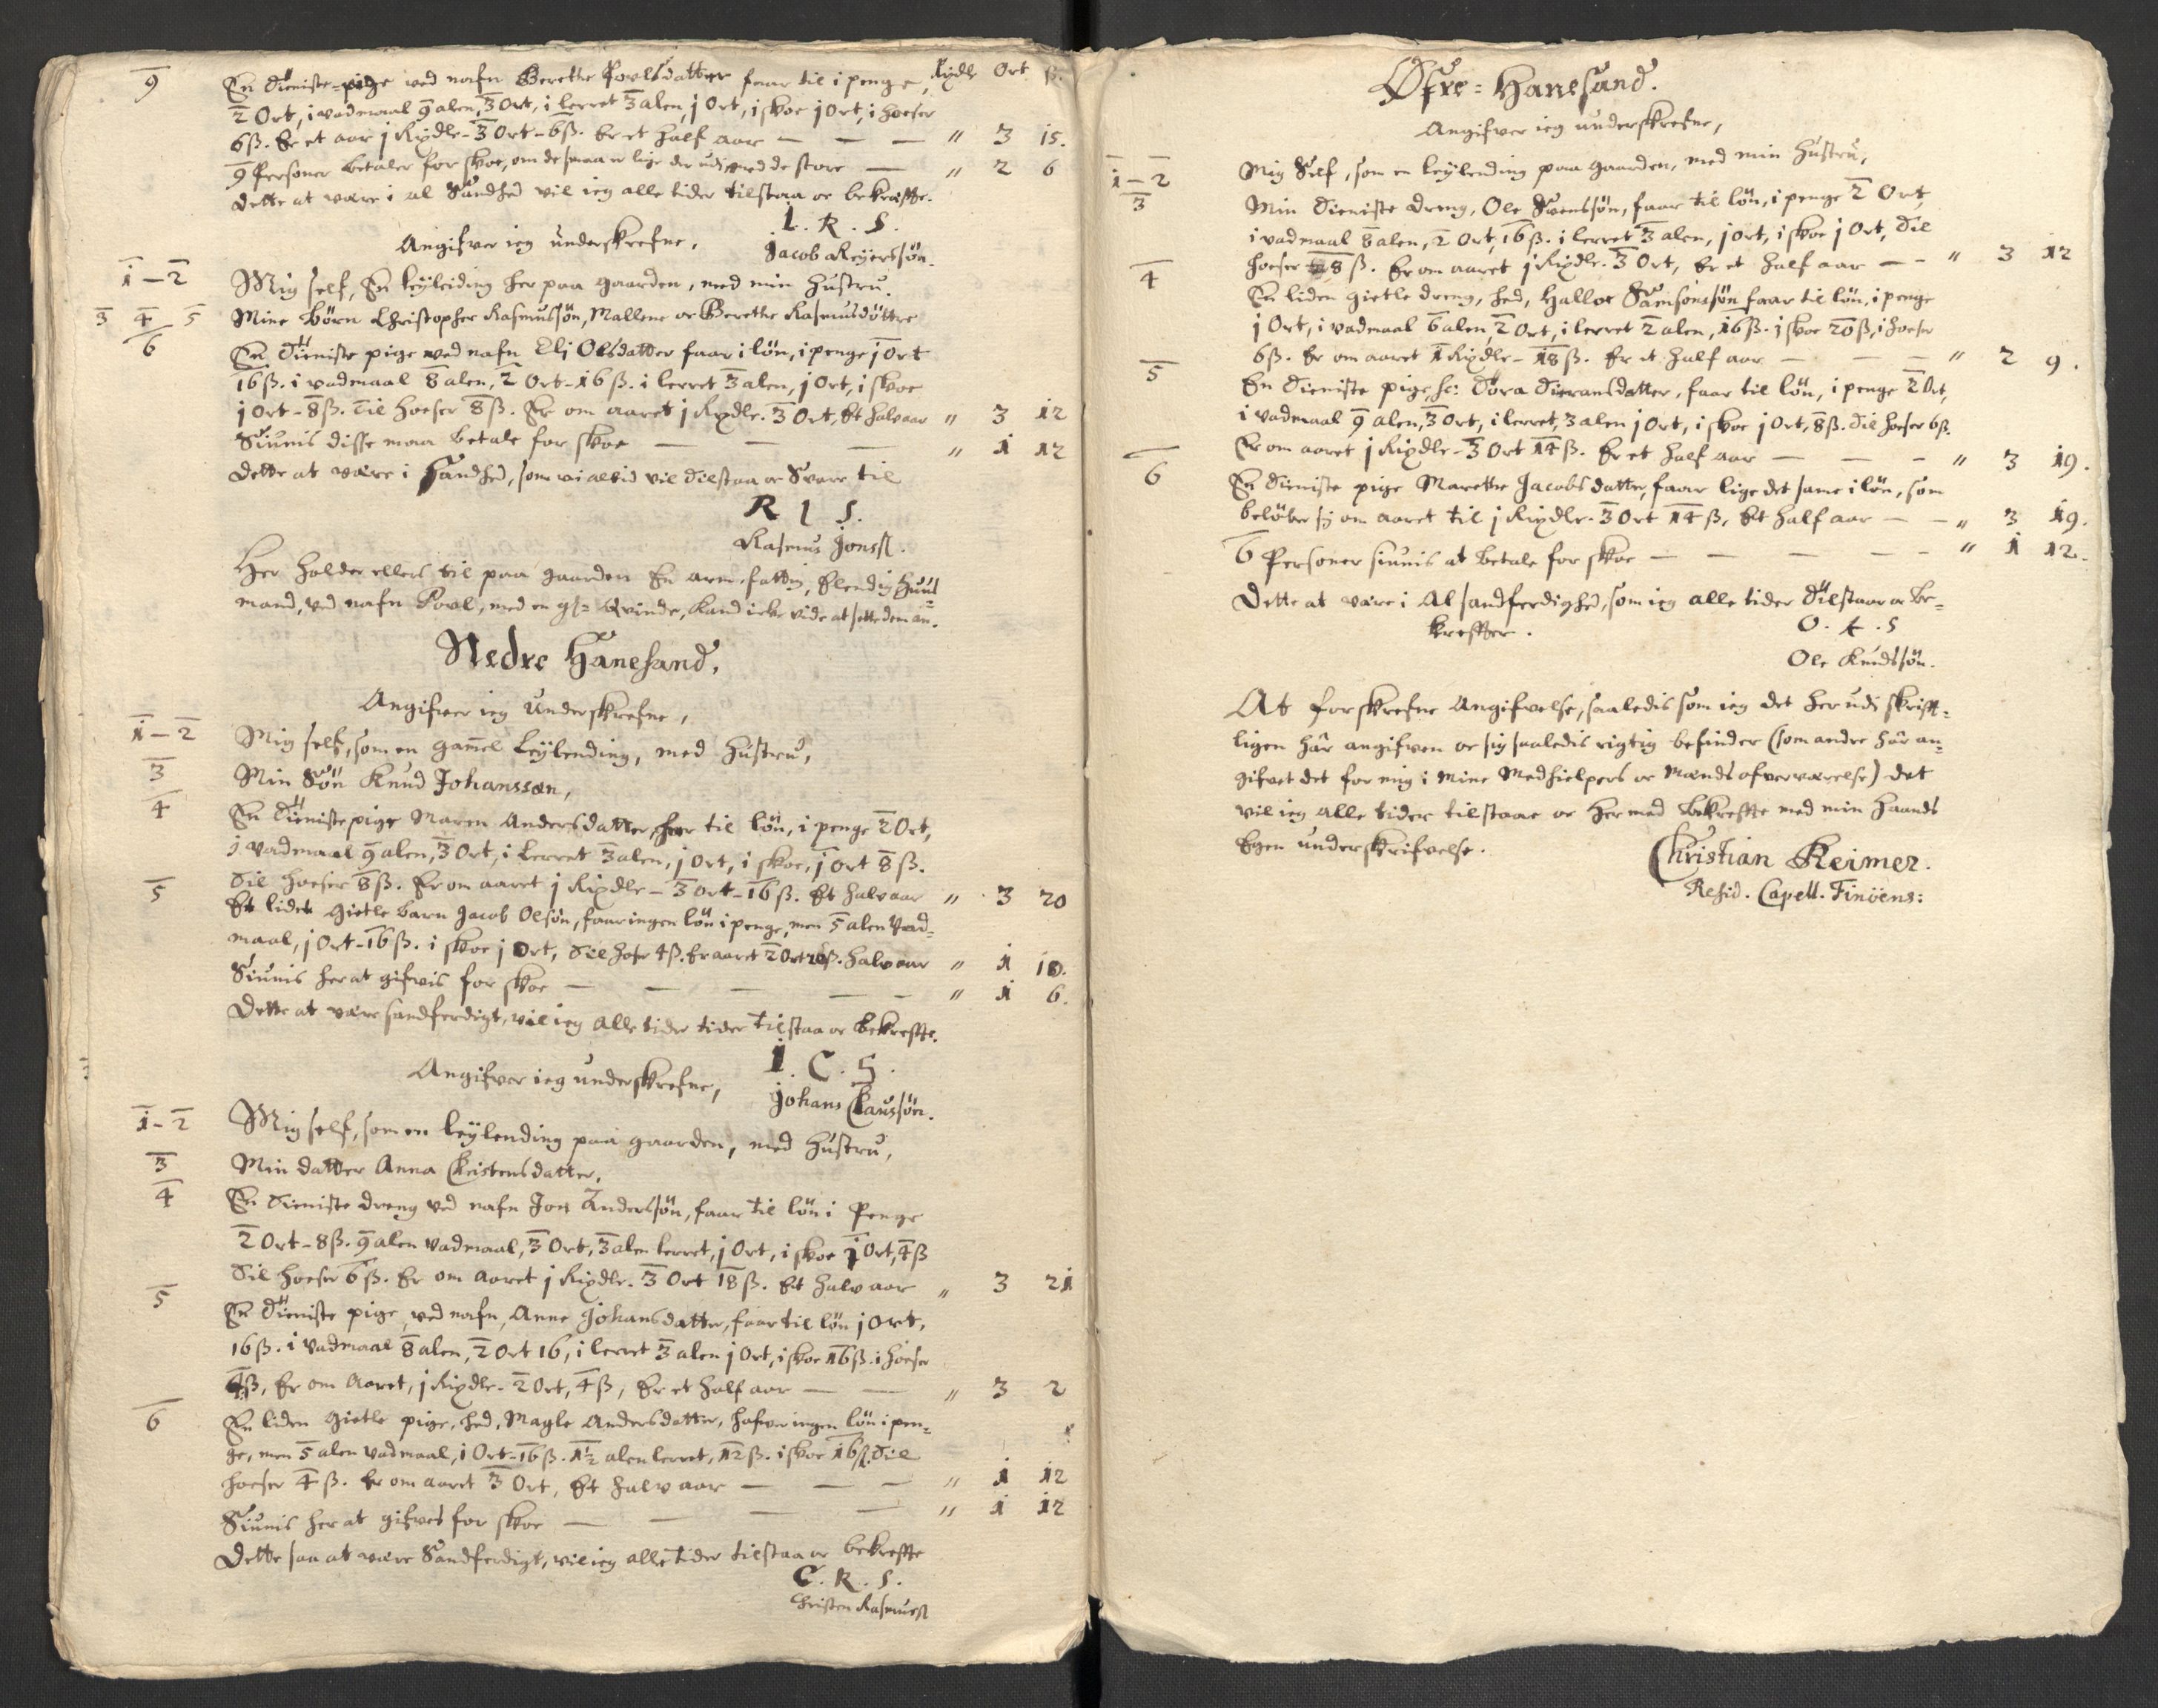 Rixdlr Ort ß.
9 En tieniste-pige ved nafn Berethe Povlsdatter faar til i penge,
2 Ort, i vadmaal 9 alen, 3 Ort, i lerret 3 alen, j Ort, i skoe j Ort, i hoeser
6ß. Er et aar j Rixdlr-3 Ort-6ß. Er et half aar — — — " 3 15.
9 Personer betaler for skoe, om de smaa er lige der udi med de store — " 2 6
Dette at være i al Sandhed vil ieg alle tider tilstaa oc bekræffte.
I. R. S.
Angifver ieg underskrefne, Jacob Reyerssøn.
1-2 Mig self, En leyleiding her paa gaarden, med min hustru.
3 4 5 Mine børn Christopher Rasmussøn, Mallene oc Berethe Rasmusdøttre
6 En tieniste pige ved nafn Elj Olsdatter faar i løn, i penge j Ort
16ß. i vadmaal 8 alen, 2 Ort-16ß. i lerret 3 alen, j Ort, i skoe
j Ort-8ß. til hoeser 8ß. Er om aaret j Rixdlr. 3 Ort, Et halv aar " 3 12
Siunis disse maa betale for skoe — — — " 1 12
Dette at være i Sandhed, som vi altid vil tilstaa oc Svare til
R I S.
Rasmus Jonsß.
Her holder ellers til paa gaarden En arm, fattig, Elendig huus-
mand, ved nafn Povl, med en gl= Qvinde, kand icke vide at sette dem an.
Nedre Hanesand,
Angifver ieg underskrefne,
1-2 Mig self, som en gamel leylending, med hustru,
3 Min Søn Knud Johanssøn,
4 En tieniste pige Maren Andersdatter, faar til løn, i penge 2 Ort,
j vadmaal 9 alen, 3 Ort, i lerret 3 alen, j Ort, i skoe, j Ort 8ß.
til hoeser 8ß. Er om aaret j Rixdlr-3 Ort-16ß. Et halv aar " 3 20
5 Et lidet gietle barn Jacob Olsøn, faar ingen løn i penge, men 5 alen Vad-
maal, j Ort-16ß. i skoe j Ort, til hoser 4ß. Er aaret 2 Ort 20ß. halv aar " 1 10.
Siunis her at gifvis for skoe — — — — " 1 6.
Dette at være sandferdigt, vil ieg alle tider tider tilstaa oc bekreffte.
I. C. S.
Angifver ieg underskrefne, Johans Claussøn.
1-2 Mig self, som en leylending paa gaarden, med hustru,
3 Min datter Anna Christensdatter,
4 En tieniste dreng ved nafn Jon Anderssøn, faar til løn i Penge
2 Ort-8ß. 9 alen vadmaal, 3 Ort, 3 alen lerret, j Ort, i skoe j Ort, 4ß
til hoeser 6ß. Er om aaret j Rixdlr. 3 Ort 18ß. Et halv aar " 3 21
5 En tieniste pige, ved nafn, Anne Johansdatter, faar til løn j Ort,
16ß. i vadmaal 8 alen, 2 Ort 16, i lerret 3 alen j Ort, i skoe 16ß. i hoeser
4ß, Er om Aaret, j Rixdlr-2 Ort, 4ß, Er et half aar — — " 3 2
6 En liden gietle pige, hed, Magle Andersdatter, hafver ingen løn i pen-
ge, men 5 alen vadmaal, j Ort-16ß. 1½ alen lerret, 12ß. i skoe 16ß. til
hoeser 4ß. Er om aaret 3 Ort, Et halv aar — — — " 1 12
Siunis her at gifves for skoe — — — — " 1 12
Dette saa at være Sandferdigt, vil ieg alle tider tilstaa oc bekreffte
C. R. S.
Christen Rasmusß
Øfre-Hanesand.
Angifver ieg underskrefne,
1-2 Mig Self, som en leylending paa gaarden, med min hustru,
3 Min tieniste dreng, Ole Svenssøn, faar til løn, i penge 2 Ort,
i vadmaal 8 alen, 2 Ort, 16ß. i lerret 3 alen, j Ort, i skoe j Ort, til
hoeser 8ß. Er om aaret j Rixdlr. 3 Ort, Er et half aar — - " 3 12
4 En liden gietle dreng, hed, Halloe Samsonssøn faar til løn, i penge
j Ort, i vadmaal 6 alen, 2 Ort, i lerret 2 alen, 16ß. i skoe 20ß, i hoeser
6ß. Er om aaret 1 Rixdlr-18ß. Er et half aar — — — " 2 9.
5 En tieniste pige, hed: Døra Tieransdatter, faar til løn, i penge 2 Ort,
i vadmaal 9 alen, 3 Ort, i lerret, 3 alen j Ort, i skoe j Ort, 8ß. til hoeser 6ß.
Er om aaret j Rixdlr-3 Ort 14ß. Er et half aar — — - " 3 19.
6 En tieniste pige Marethe Jacobsdatter, faar lige det same i løn, som
beløber sig om aaret til j Rixdlr. 3 Ort 14ß, Et half aar — - " 3 19.
6 Personer siunis at betale for skoe — — — — - " 1 12.
Dette at være i Al sandferdighed, som ieg alle tider tilstaar oc be-
kreffter. O. K. S
Ole Knudssøn.
At forskrefne Angifvelse, saaledis som ieg det her udi skrifft-
ligen har angifven oc sig saaledis rigtig befinder (som andre har an-
gifvet det for mig i mine Medhielpers oc Mænds ofververelse) det
vil ieg alle tider tilstaae oc hermed bekreffte med min haands
Egen underskrifvelse.
Christian Reimer.
Resid. Capell. Finöens: